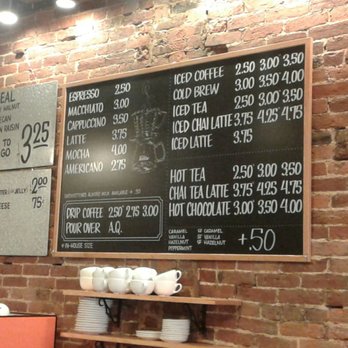 EAL
HAZELNUT
ECAN
RAISIN
TO
GO
3.25
JELLY
2.00
EESE
75¢
ESPRESSO 2.50
MACCHIATO 3.00
CAPPUCCINO 3.50
LATTE 3.75
MOCHA 4.00
AMERICANO 2.75
HOUSEMADE ALMOND MILK AVAILABLE +.50
DRIP COFFEE 2.50* 2.75 3.00
POUR OVER A.Q.
* IN-HOUSE SIZE
ICED COFFEE 2.50 3.00 3.50
COLD BREW 3.00 3.50 4.00
ICED TEA 2.50 3.00 3.50
ICED CHAI LATTE 3.75 4.25 4.75
ICED LATTE 3.75
HOT TEA 2.50 3.00 3.50
CHAI TEA LATTE 3.75 4.25 4.75
HOT CHOCOLATE 3.00 3.50 4.00
CARAMEL SF CARAMEL
VANILLA SF VANILLA
HAZELNUT SF HAZELNUT
PEPPERMINT
+.50